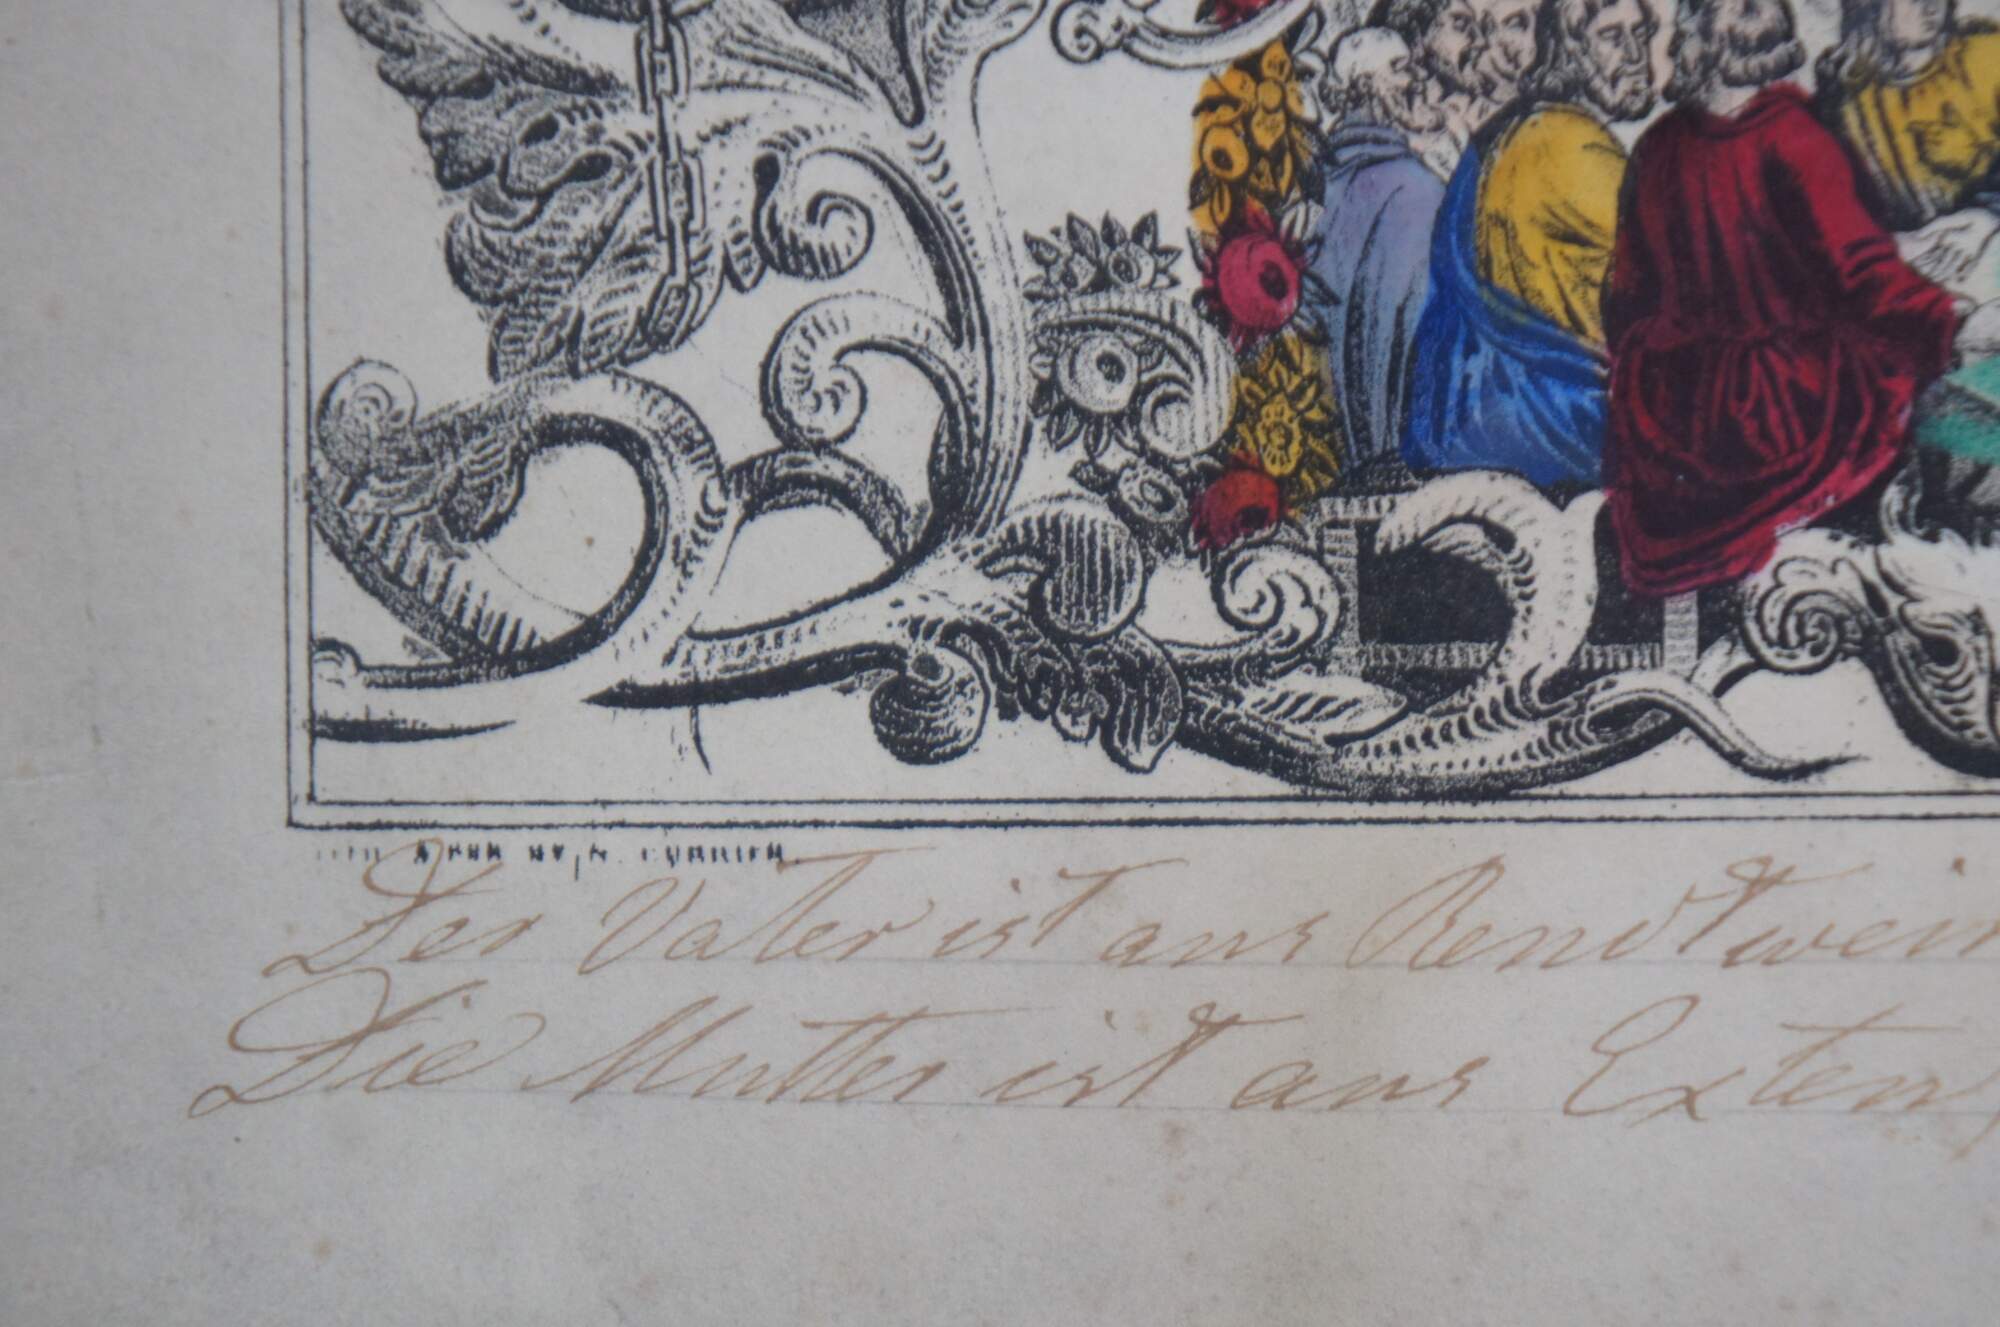 LITH & PUB BY N. CURRIER.
Der Vater ist aus Rendtwein
Die Mutter ist aus Exten